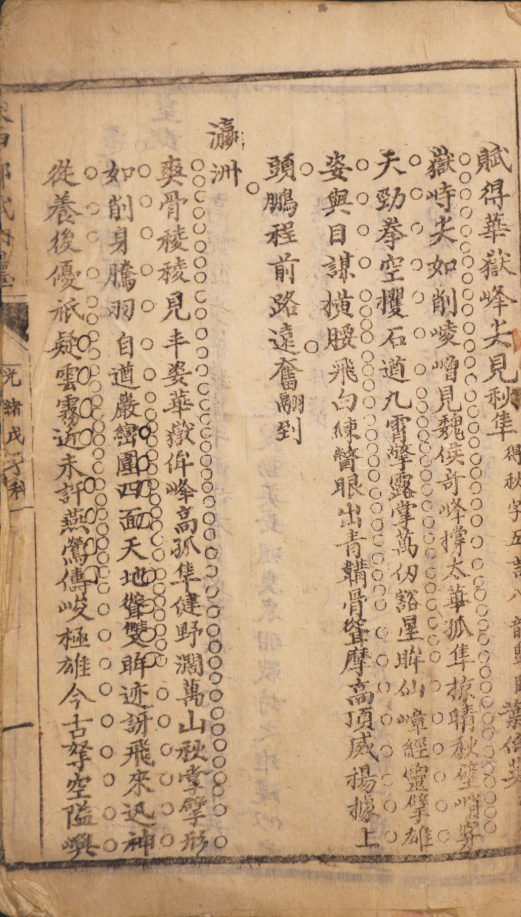 賦得華嶽峰尖見秋隼 得秋字五言八韻
嶽峙尖如削崚嶒見魏侯奇峰撐太華孤隼掠晴秋壁峭穿
天勁拳空攫石遒九霄擎露掌萬仞豁星眸仙嶂經靈擘雄
姿與目謀橫腰飛白練瞥眼出青鞲骨聳摩高頂威揚據上
頭鵬程前路遠奮翮到
瀛洲
爽骨稜稜見丰姿華嶽侔峰高孤隼健野濶萬山秋掌擘形
如削身騰羽自遒巖巒圍四面天地聳雙眸迹訝飛來迅神
從養後優祇疑雲霧近未許燕鶯儔峻極雄今古拏空隘嶼
光緒戊子科
一